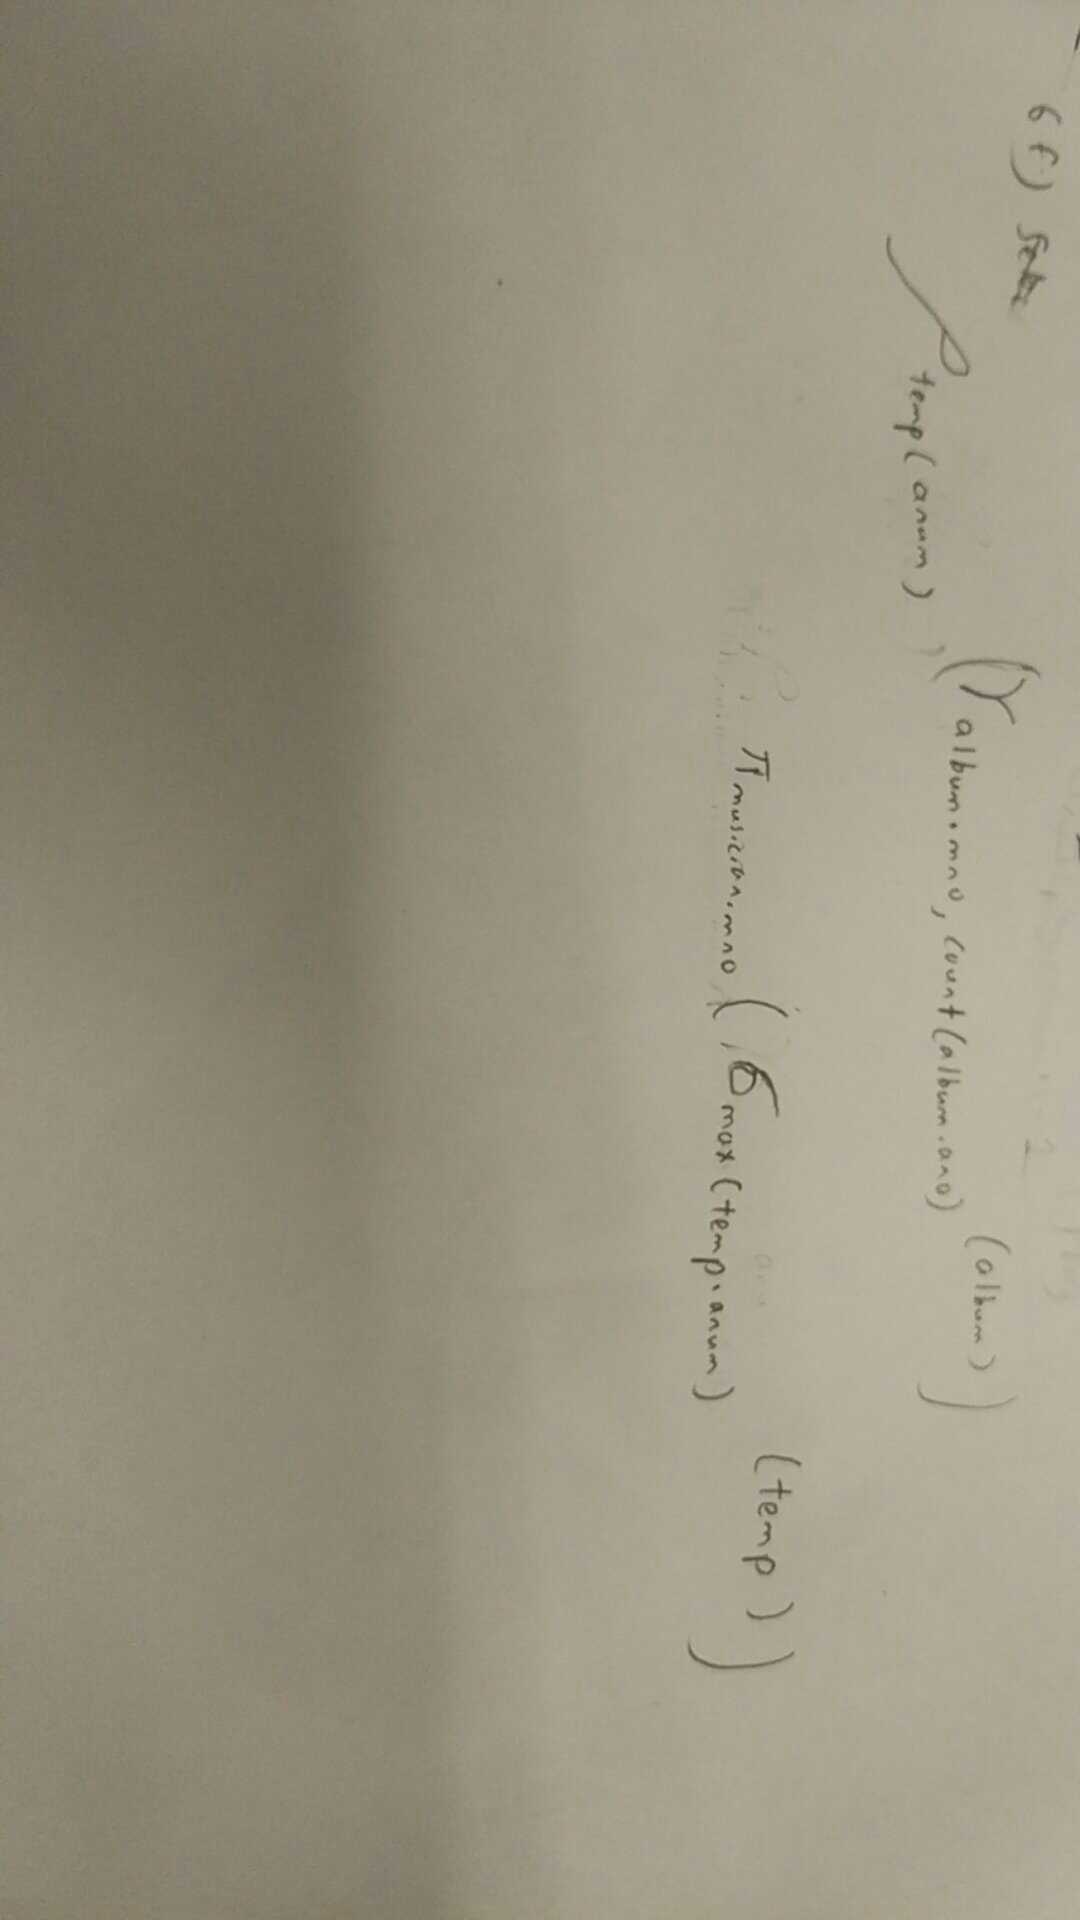 6 f)
ρ temp(anum) (γ album.mno, count(album.ano) (album))
π musician.mno (σ max(temp.anum) (temp))